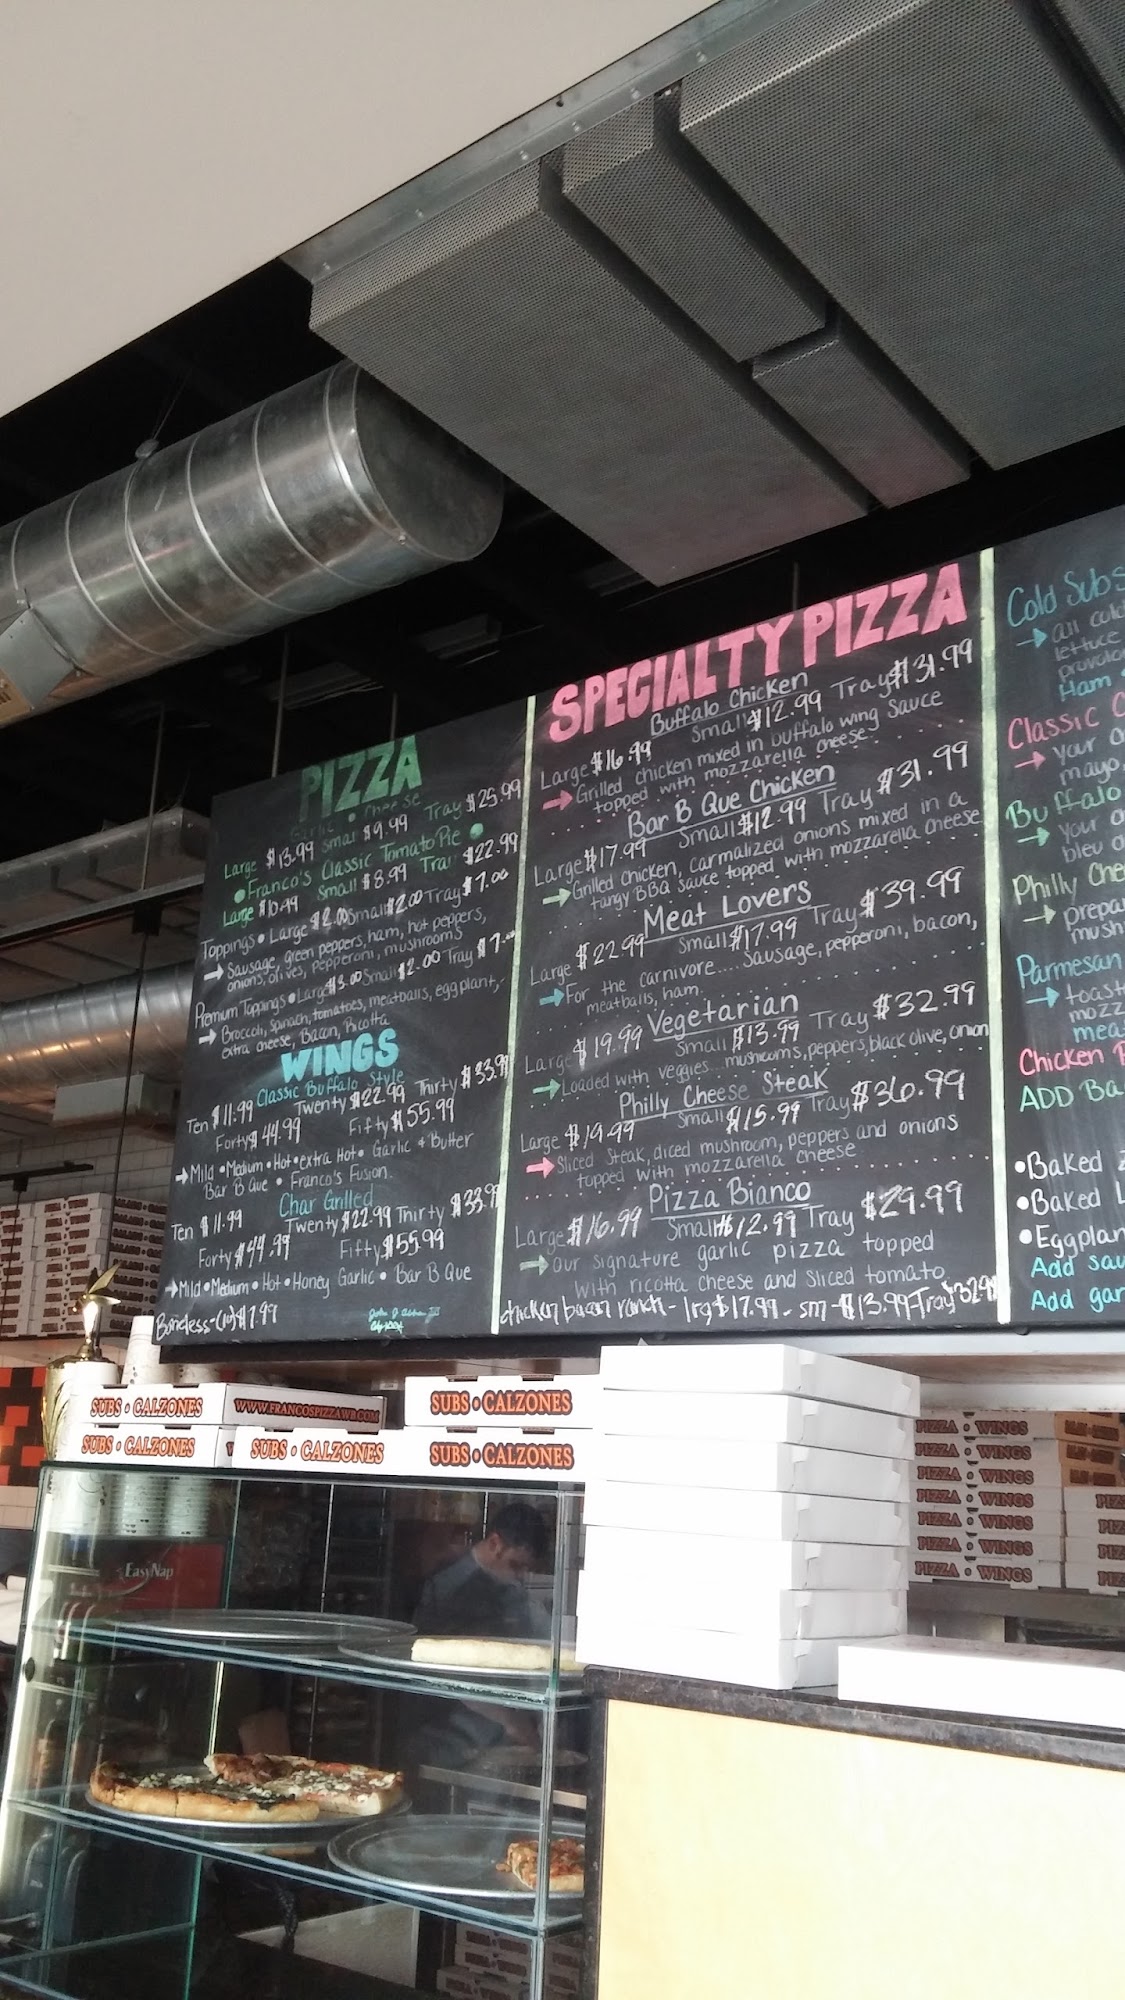 PIZZA
Garlic • Cheese
Large $13.99 Small $9.99 Tray $25.99
• Franco's Classic Tomato Pie •
Large $10.99 Small $8.99 Tray $22.99
Toppings • Large $2.00 Small $2.00 Tray $7.00
→ Sausage, green peppers, ham, hot peppers,
onions, olives, pepperoni, mushrooms
Premium Toppings • Large $3.00 Small $2.00 Tray
→ Broccoli, Spinach, tomatoes, meatballs, eggplant,
extra cheese, Bacon, Ricotta
WINGS
Classic Buffalo Style
Ten $11.99 Twenty $22.99 Thirty $33.99
Forty $44.99 Fifty $55.99
→ Mild • Medium • Hot • extra Hot • Garlic & Butter
Bar B Que • Franco's Fusion.
Char Grilled
Ten $11.99 Twenty $22.99 Thirty $33.99
Forty $44.99 Fifty $55.99
→ Mild • Medium • Hot • Honey Garlic • Bar B Que
Boneless-(10) $7.99
SPECIALTY PIZZA
Buffalo Chicken
Large $16.99 Small $12.99 Tray $31.99
→ Grilled chicken mixed in buffalo wing Sauce
topped with mozzarella cheese
Bar B Que Chicken
Large $17.99 Small $12.99 Tray $31.99
→ Grilled chicken, carmalized onions mixed in a
tangy BBQ sauce topped with mozzarella cheese
Meat Lovers
Large $22.99 Small $17.99 Tray $39.99
→ For the carnivore.... Sausage, pepperoni, bacon,
meatballs, ham.
Vegetarian
Large $19.99 Small $13.99 Tray $32.99
→ Loaded with veggies... mushrooms, peppers, black olive, onion
Philly Cheese Steak
Large $19.99 Small $15.99 Tray $36.99
→ Sliced Steak, diced mushroom, peppers and onions
topped with mozzarella cheese
Pizza Bianco
Large $16.99 Small $12.99 Tray $29.99
→ our signature garlic pizza topped
with ricotta cheese and sliced tomato
chicken bacon ranch - lrg $17.99 - sm - $13.99 - Tray $32.99
Cold Subs
→ all cold
lettuce
provolo
Ham
Classic C
→ your
mayo,
Buffalo
→ your
bleu
Philly Chee
→ prepar
mush
Parmesan
→ toast
mozz
mea
Chicken
ADD Ba
• Baked
• Baked L
• Eggplan
Add sau
Add gar
SUBS • CALZONES WWW.FRANCOSPIZZAWB.COM
SUBS • CALZONES
SUBS • CALZONES
SUBS • CALZONES
SUBS • CALZONES
PIZZA • WINGS
PIZZA • WINGS
PIZZA • WINGS
PIZZA • WINGS
PIZZA • WINGS
PIZZA • WINGS
PIZZA • WINGS
EasyNap